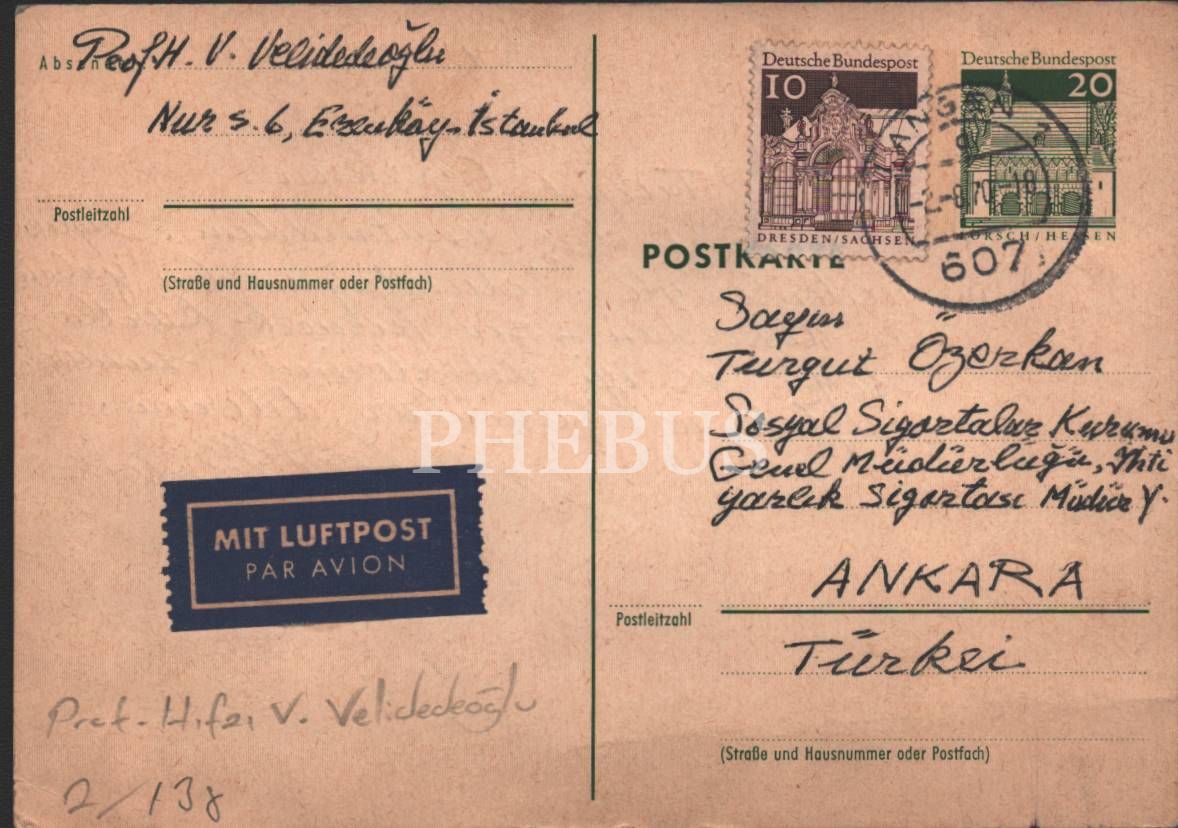 Absender
Prof. H. V. Velidedeoğlu
Nur s. 6, Erenköy-İstanbul
Postleitzahl
(Straße und Hausnummer oder Postfach)
MIT LUFTPOST
PAR AVION
Prof. Hıfzı V. Velidedeoğlu
2/13
Deutsche Bundespost
10
DRESDEN/SACHSEN
Deutsche Bundespost
20
LORSCH/HESSEN
LANGEN
70-18
607
POSTKARTE
Sayın
Turgut Özerkan
Sosyal Sigortalar Kurumu
Genel Müdürlüğü, İhti
yarlık Sigortası Müdür Y.
ANKARA
Postleitzahl
Türkei
(Straße und Hausnummer oder Postfach)
PHEBUS